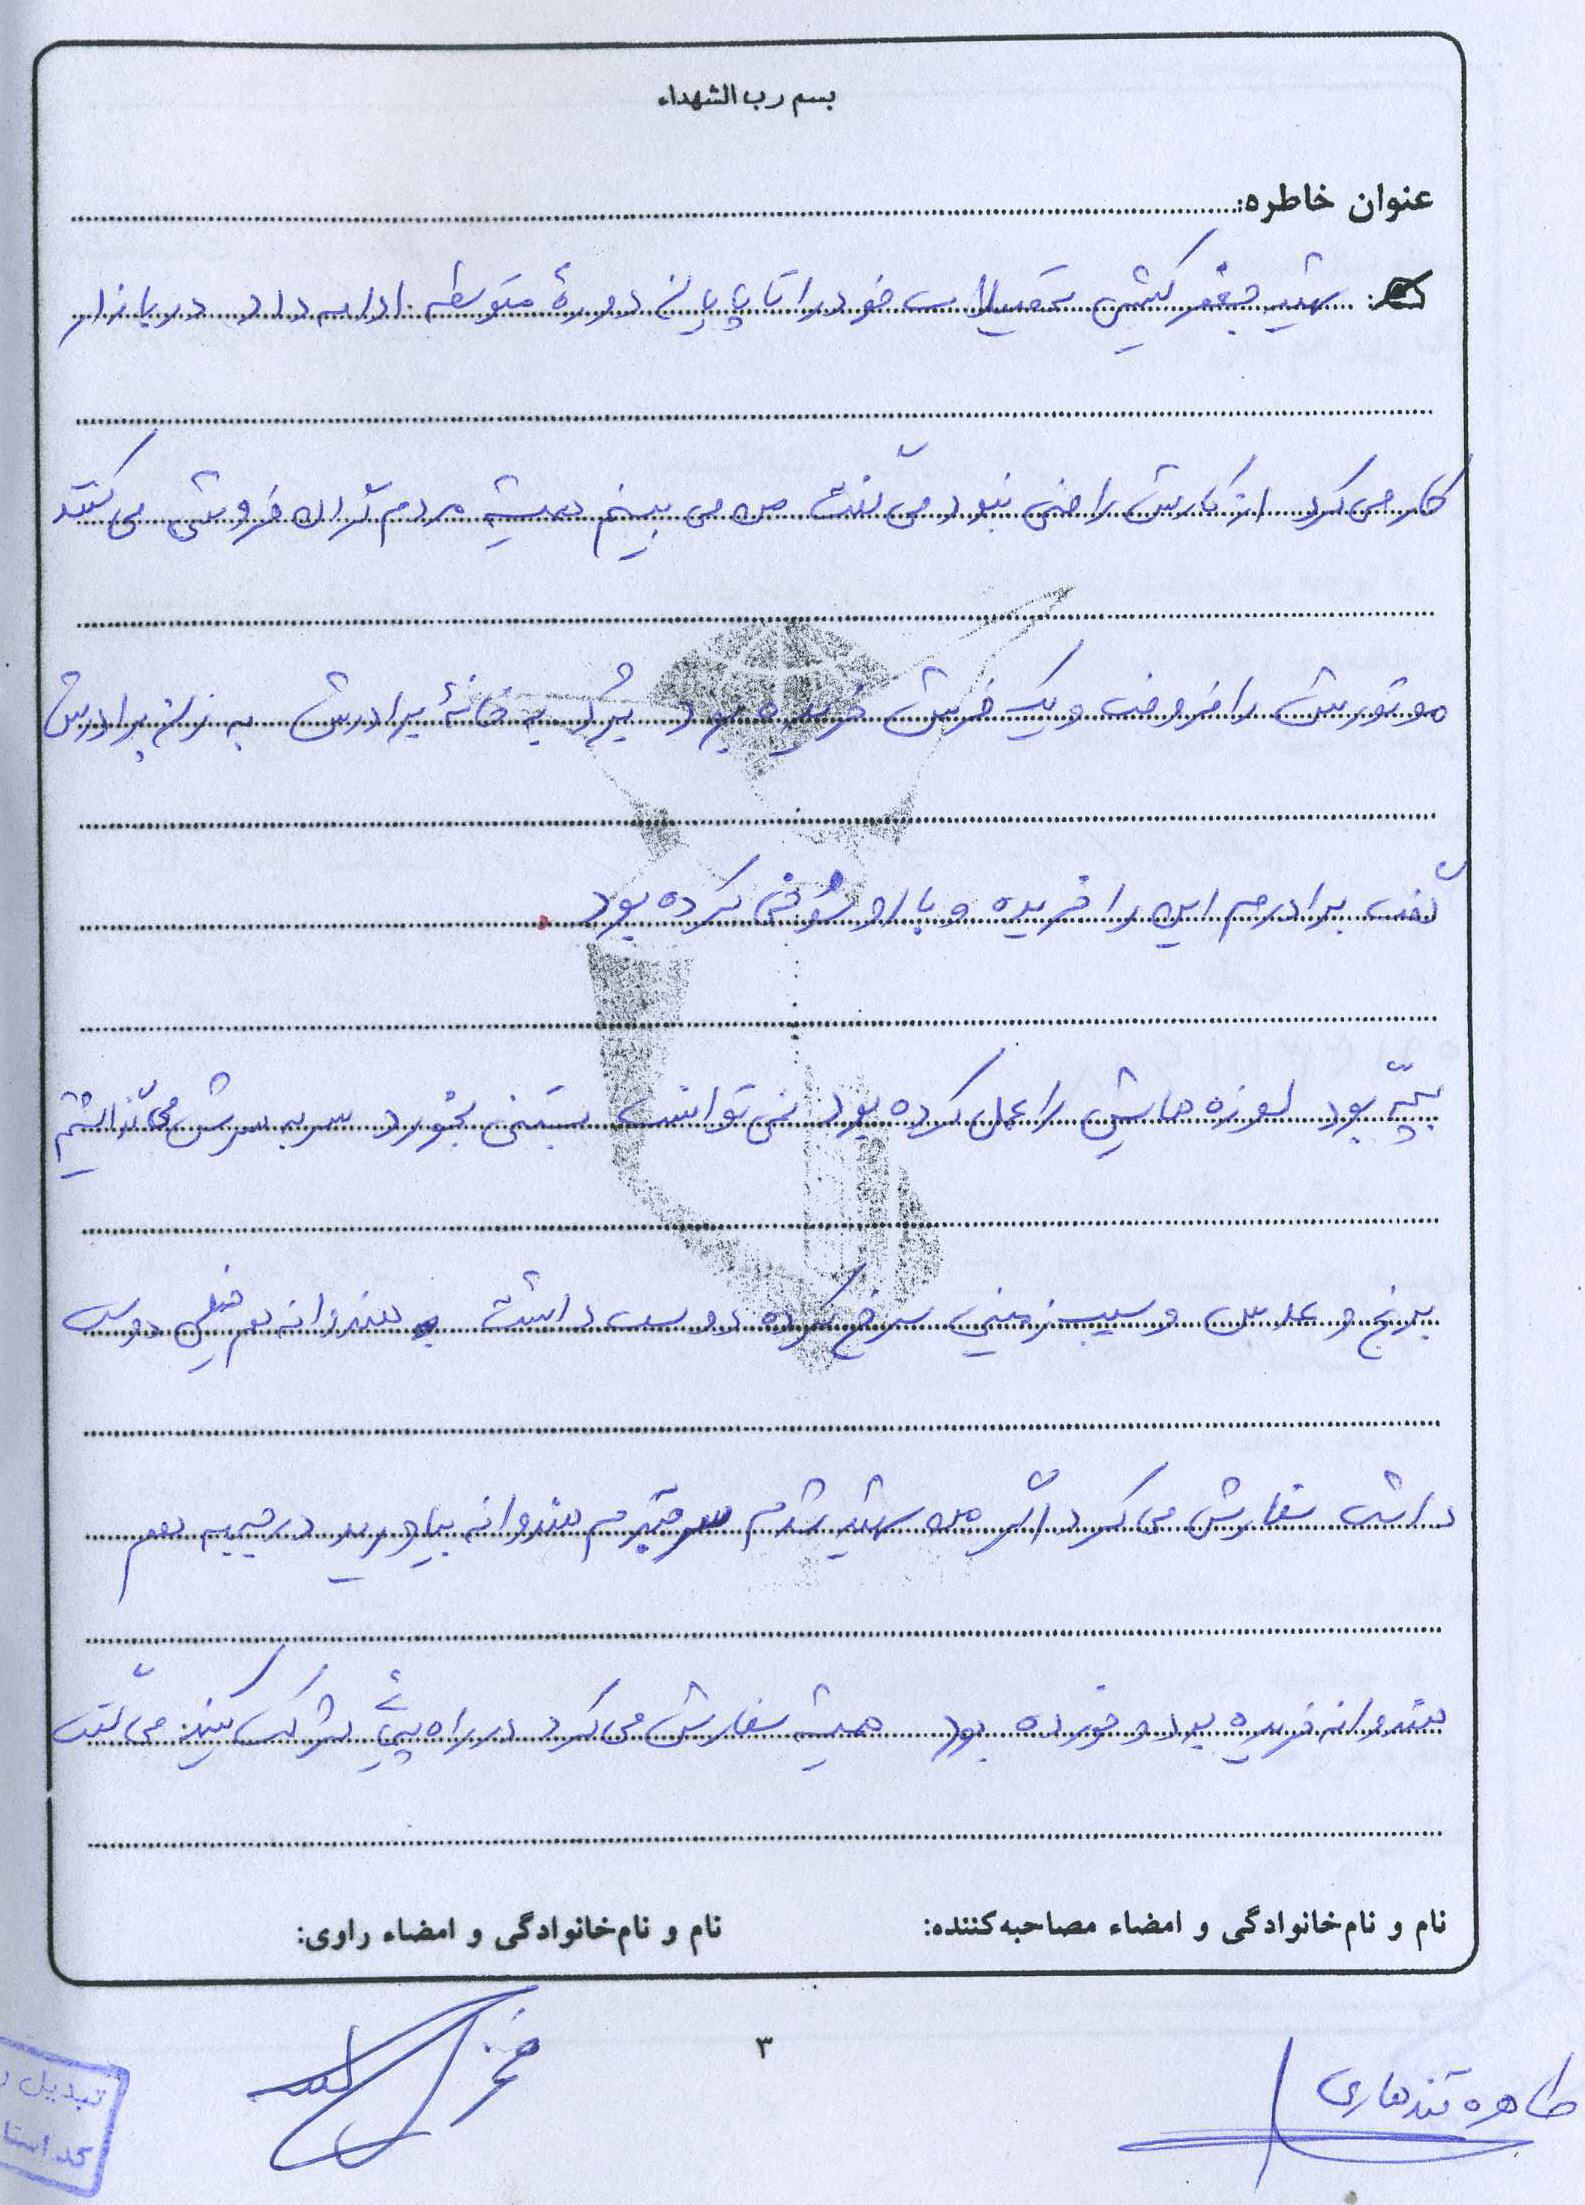 بسم رب الشهداء
عنوان خاطره:
شهید جعفر کشیش تحصیلات خود را تا پایان دورهٔ متوسطه ادامه داد در بازار
کار می کرد از کارش راضی نبود می گفت من می بینم همیشه مردم گران فروشی می کنند
موتورش را فروخت و یک فرش خریده بود بُرد به خانهٔ برادرش به زن برادرش
گفت برادرم این را خریده و با او شوخی کرده بود.
بچّه بود لوزه هایش را عمل کرده بود نمی توانست بستنی بخورد سربه سرش می گذاشتیم
برنج و عدس و سیب زمینی سرخ کرده دوست داشت هندوانه هم خیلی دوست
داشت سفارش می کرد اگر من شهید شدم سر قبرم هندوانه بیاورید در جبهه هم
هندوانه خریده بود و خورده بود همیشه سفارش می کرد در راه پیمائی شرکت کنید می گفت
نام و نام خانوادگی و امضاء مصاحبه کننده:
نام و نام خانوادگی و امضاء راوی:
۳
طاهره قندهاری
تبدیل
کد استا